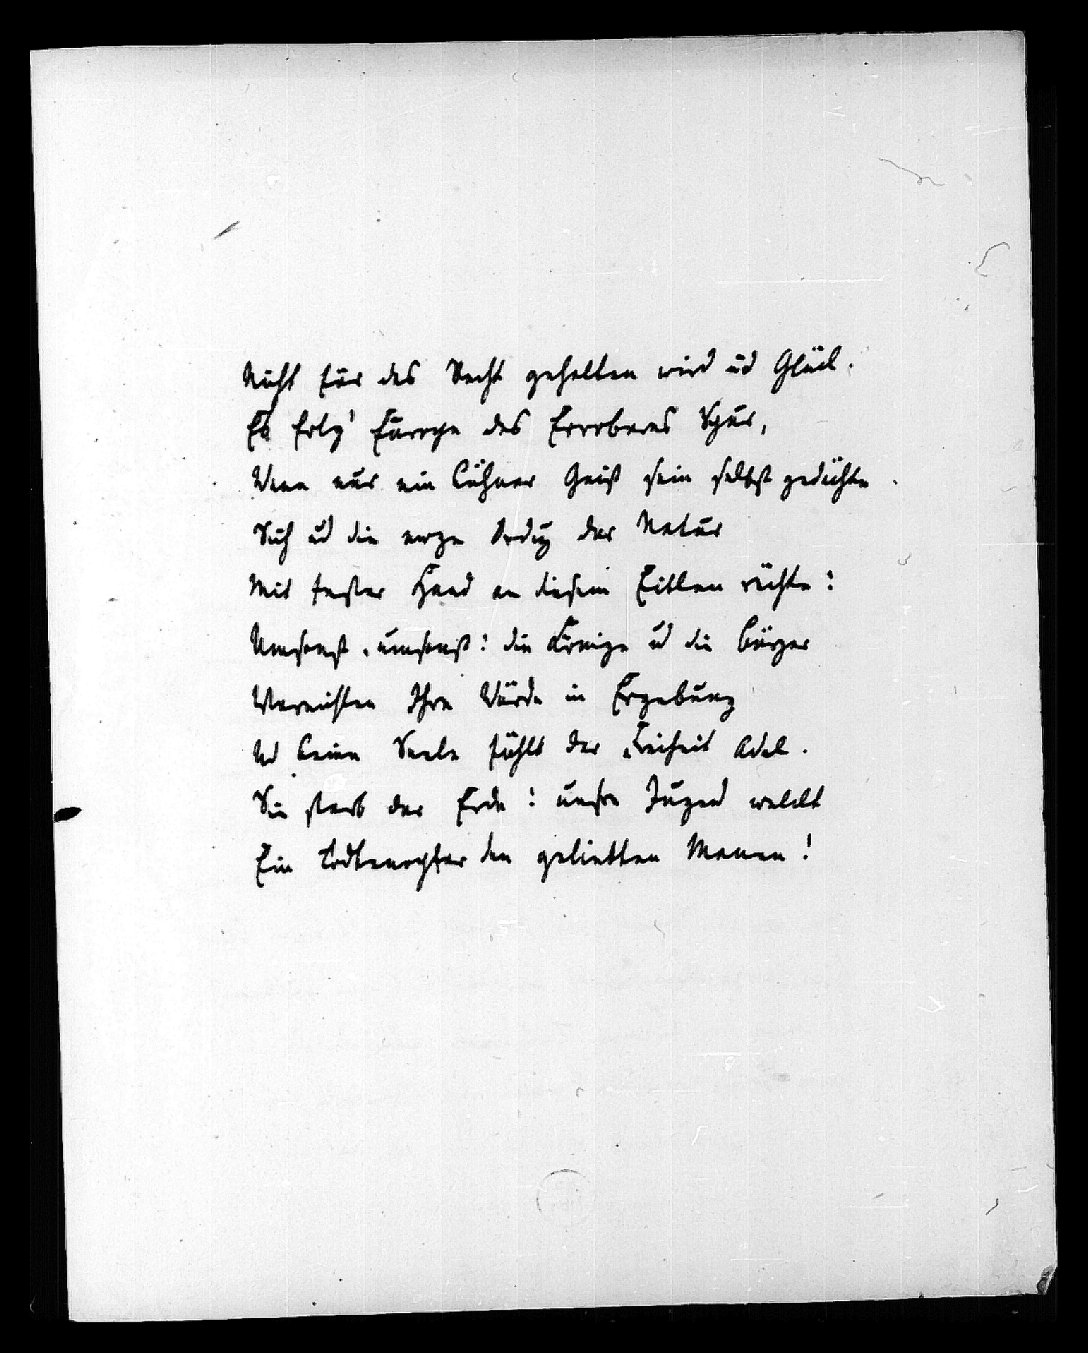 Nicht für das Recht gehalten wird ud Glück.
Es folg' Europa des Eroberers Spur,
Wenn nur ein kühner Geist sein selbst gedächte
Sich ud die ewge Ordng der Natur
Mit fester Hand an diesem Eitlen rächte:
Umsonst, umsonst! die Könige ud die Bürger
Vernichten Ihre Würde in Ergebung
Ud keine Seele fühlt der Freiheit Adel.
Sie starb der Erde: unsre Jugend welckt
Ein Todtenopfer den geliebten Manen!